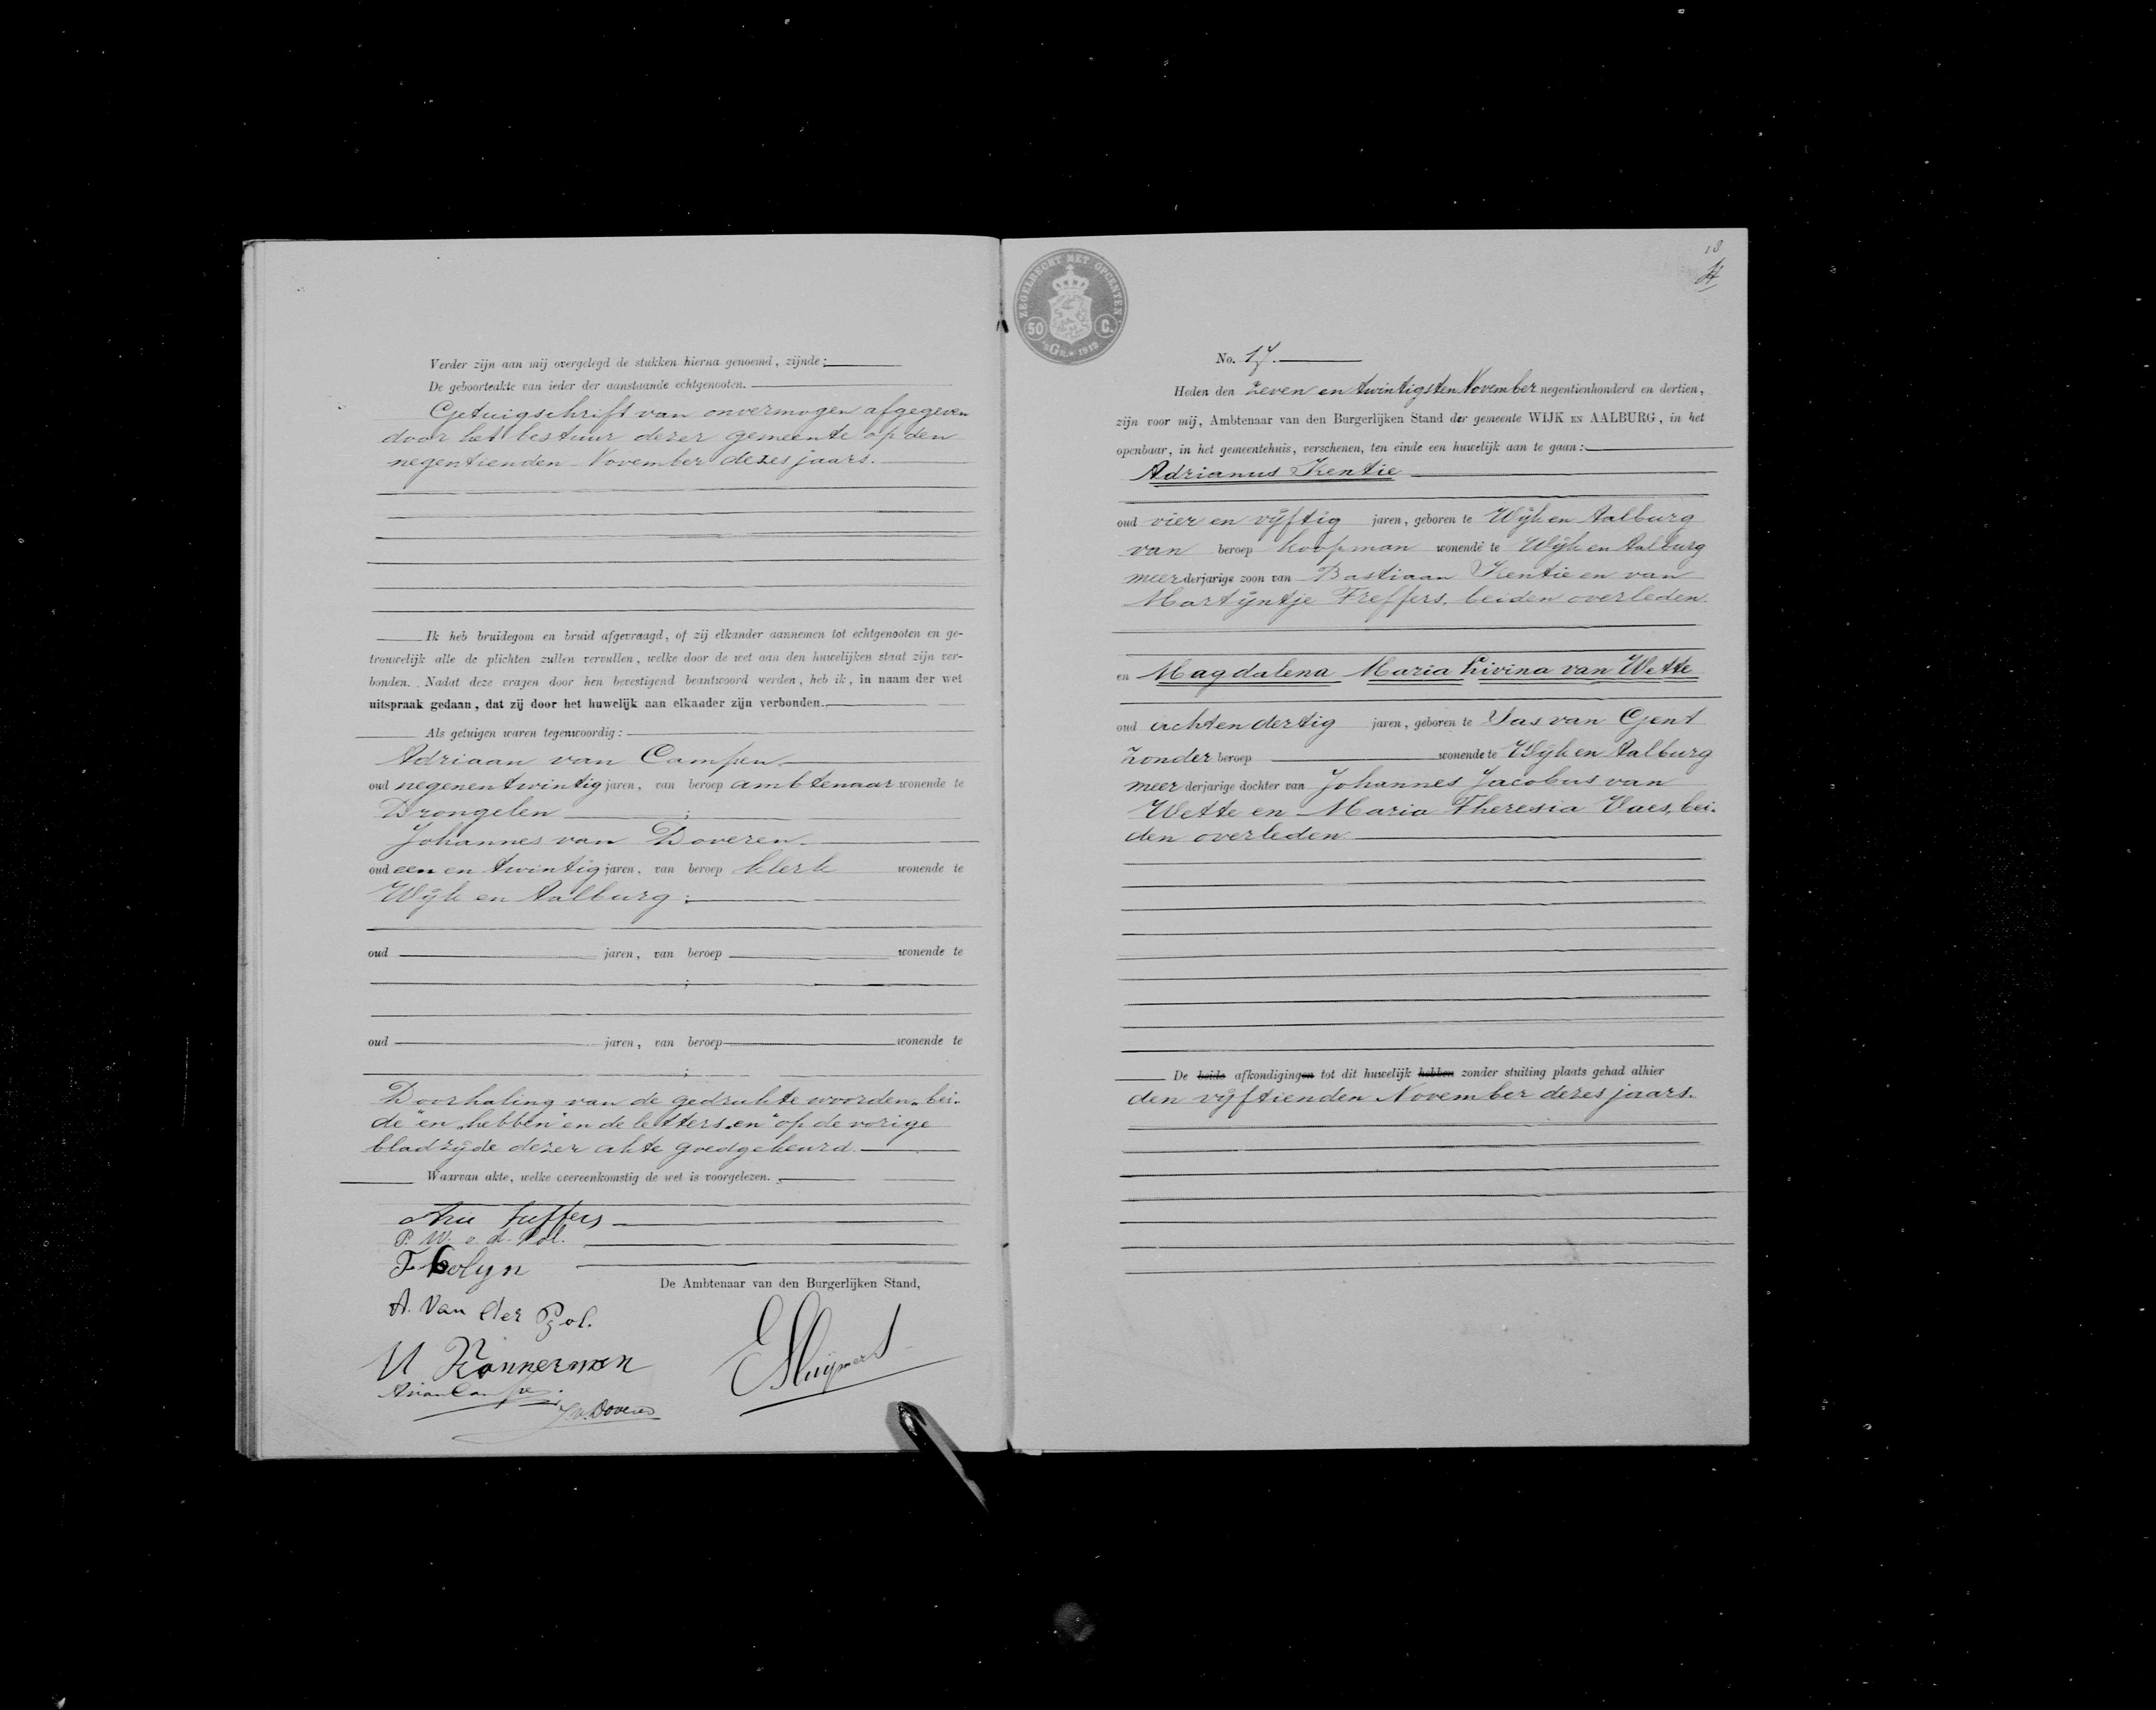 Verder zijn aan mij overgelegd de stukken hierna genoemd, zijnde:
De geboorteakte van ieder der aanstaande echtgenooten.
Getuigschrift van onvermogen afgegeven
door het bestuur dezer gemeente op den
negentienden November dezes jaars.
Ik heb bruidegom en bruid afgevraagd, of zij elkander aannemen tot echtgenooten en ge-
trouwelijk alle de plichten zullen vervullen, welke door de wet aan den huwelijken staat zijn ver-
bonden. Nadat deze vragen door hen bevestigend beantwoord werden, heb ik, in naam der wet
uitspraak gedaan, dat zij door het huwelijk aan elkander zijn verbonden.
Als getuigen waren tegenwoordig:
Adriaan van Campen
oud negenentwintig jaren, van beroep ambtenaar wonende te
Drongelen ;
Johannes van Doveren
oud een en twintig jaren, van beroep klerk wonende te
Wijk en Aalburg ;
oud jaren, van beroep wonende te
;
oud jaren, van beroep wonende te
;
Doorhaling van de gedrukte woorden „bei-
de" en „hebben" en de letters „en" op de vorige
bladzijde dezer akte goedgekeurd.
Waarvan akte, welke overeenkomstig de wet is voorgelezen.
P. W. v. d. Pol.
De Ambtenaar van den Burgerlijken Stand,
A. van der Pol.
J. v. Doveren
ZEGELRECHT MET OPCENTEN
50 C.
'sGR. * 1912
18
No. 17.
Heden den zeven en twintigsten November negentienhonderd en dertien,
zijn voor mij, Ambtenaar van den Burgerlijken Stand der gemeente WIJK EN AALBURG, in het
openbaar, in het gemeentehuis, verschenen, ten einde een huwelijk aan te gaan:
Adrianus Kentie
oud vier en vijftig jaren, geboren te Wijk en Aalburg
van beroep koopman wonende te Wijk en Aalburg
meerderjarige zoon van Bastiaan Kentie en van
Martijntje Treffers, beiden overleden.
en Magdalena Maria Livina van Wette
oud achtendertig jaren, geboren te Sas van Gent
zonder beroep wonende te Wijk en Aalburg
meerderjarige dochter van Johannes Jacobus van
Wette en Maria Theresia Vaes, bei-
den overleden.
De beide afkondigingen tot dit huwelijk hebben zonder stuiting plaats gehad alhier
den vijftienden November dezes jaars.